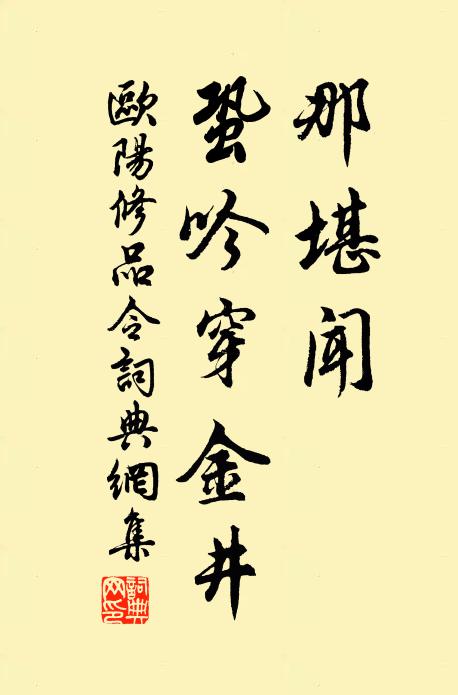 那堪聞
蛩吟穿金井
歐陽修品令詞典網集
詞典網印